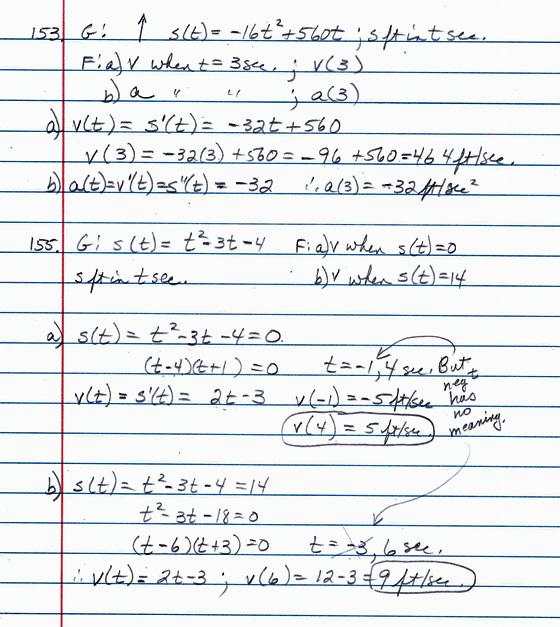 153. G: ↑ s(t) = -16t² + 560t ; s ft in t sec.
F: a) v when t = 3 sec. ; v(3)
b) a " " ; a(3)
a) v(t) = s'(t) = -32t + 560
v(3) = -32(3) + 560 = -96 + 560 = 464 ft/sec.
b) a(t) = v'(t) = s"(t) = -32 ∴ a(3) = -32 ft/sec²
155. G: s(t) = t² - 3t - 4 F: a) v when s(t) = 0
s ft in t sec. b) v when s(t) = 14
a) s(t) = t² - 3t - 4 = 0.
(t-4)(t+1) = 0 t = -1, 4 sec. But t
neg
v(t) = s'(t) = 2t - 3 v(-1) = -5 ft/sec has
no
v(4) = 5 ft/sec. meaning.
b) s(t) = t² - 3t - 4 = 14
t² - 3t - 18 = 0
(t-6)(t+3) = 0 t = -3, 6 sec.
∴ v(t) = 2t - 3 ; v(6) = 12 - 3 = 9 ft/sec.